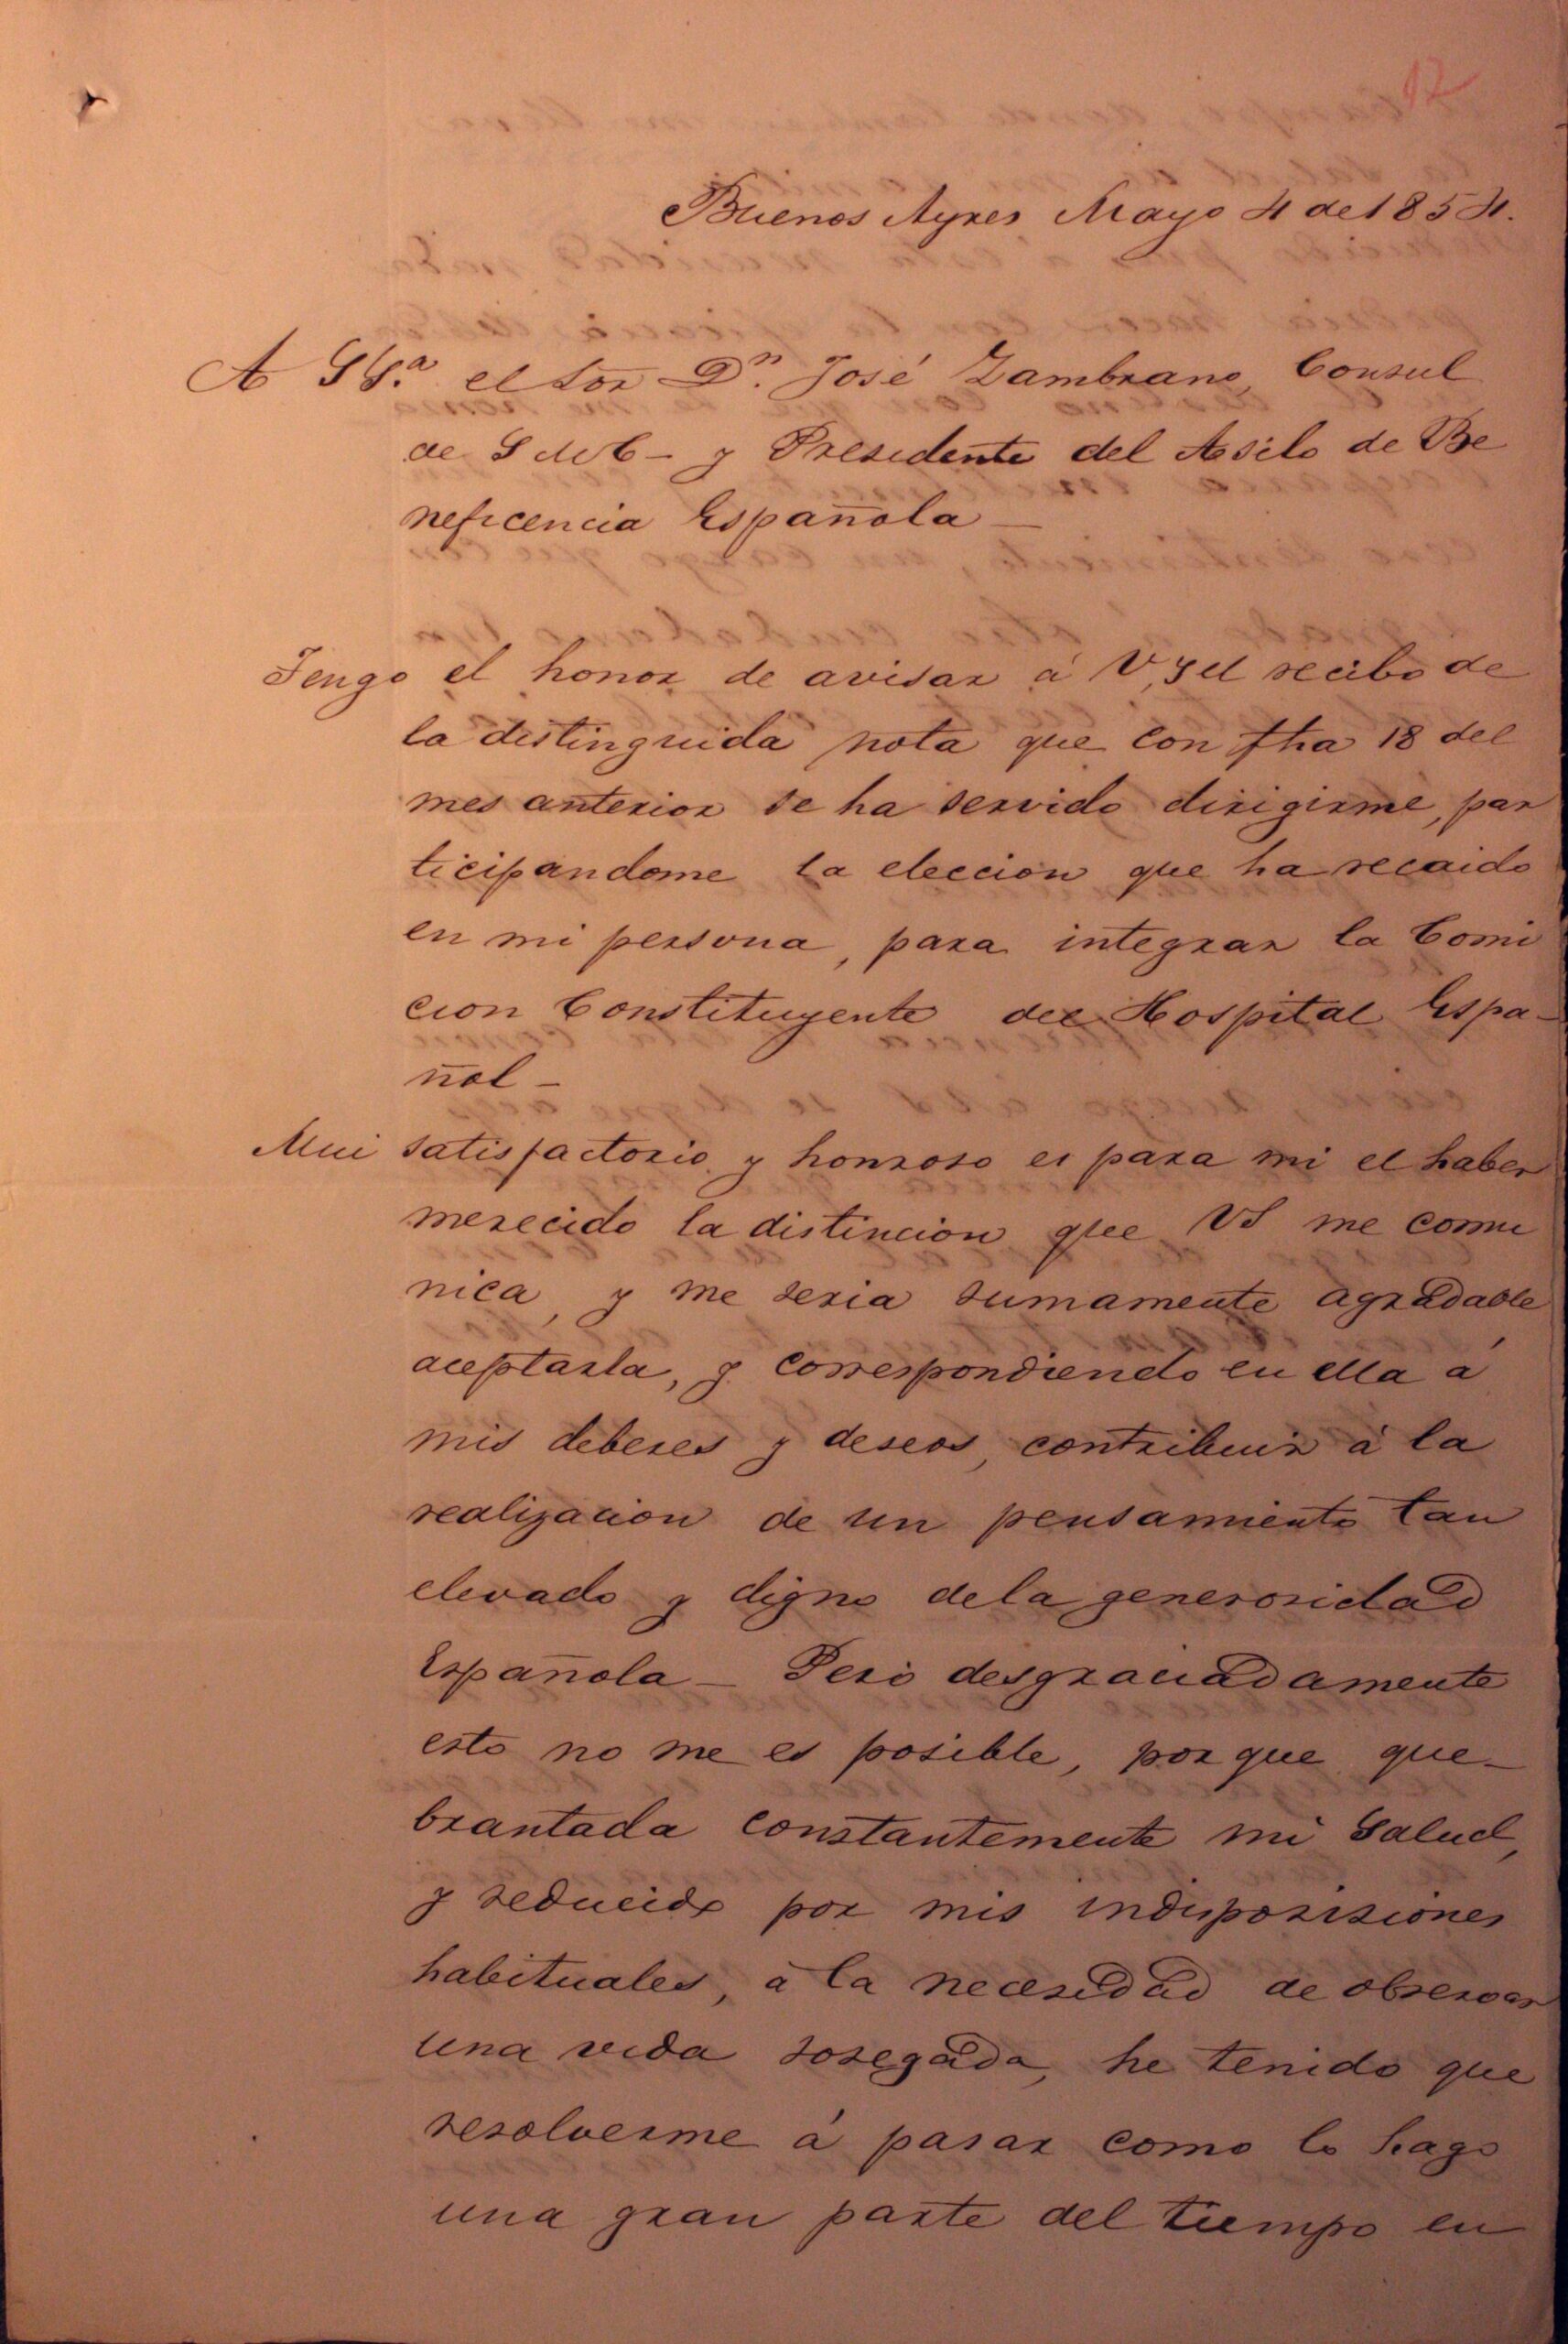 12
Buenos Ayres Mayo 4 de 1854.
A SSª. el Sor Dn. José Zambrano, Consul
de S M C - y Presidente del Asilo de Be
neficencia Española -
Tengo el honor de avisar á V,S el recibo de
la distinguida nota que con fha 18 del
mes anterior se ha servido dirigirme, par
ticipandome la eleccion que ha recaido
en mi persona, para integrar la Comi
cion Constituyente del Hospital Espa-
ñol -
Mui satisfactorio y honroso es para mi el haber
merecido la distincion que VS me comu
nica, y me seria sumamente agradable
aceptarla, y correspondiendo en ella á
mis deberes y deseos, contribuir á la
realizacion de un pensamiento tan
elevado y digno de la generosidad
Española - Pero desgraciadamente
esto no me es posible, porque que-
brantada constantemente mi salud,
y reducido por mis indisposisiones
habituales, á la necesidad de observar
una vida sosegada, he tenido que
resolverme á pasar como lo hago
una gran parte del tiempo en